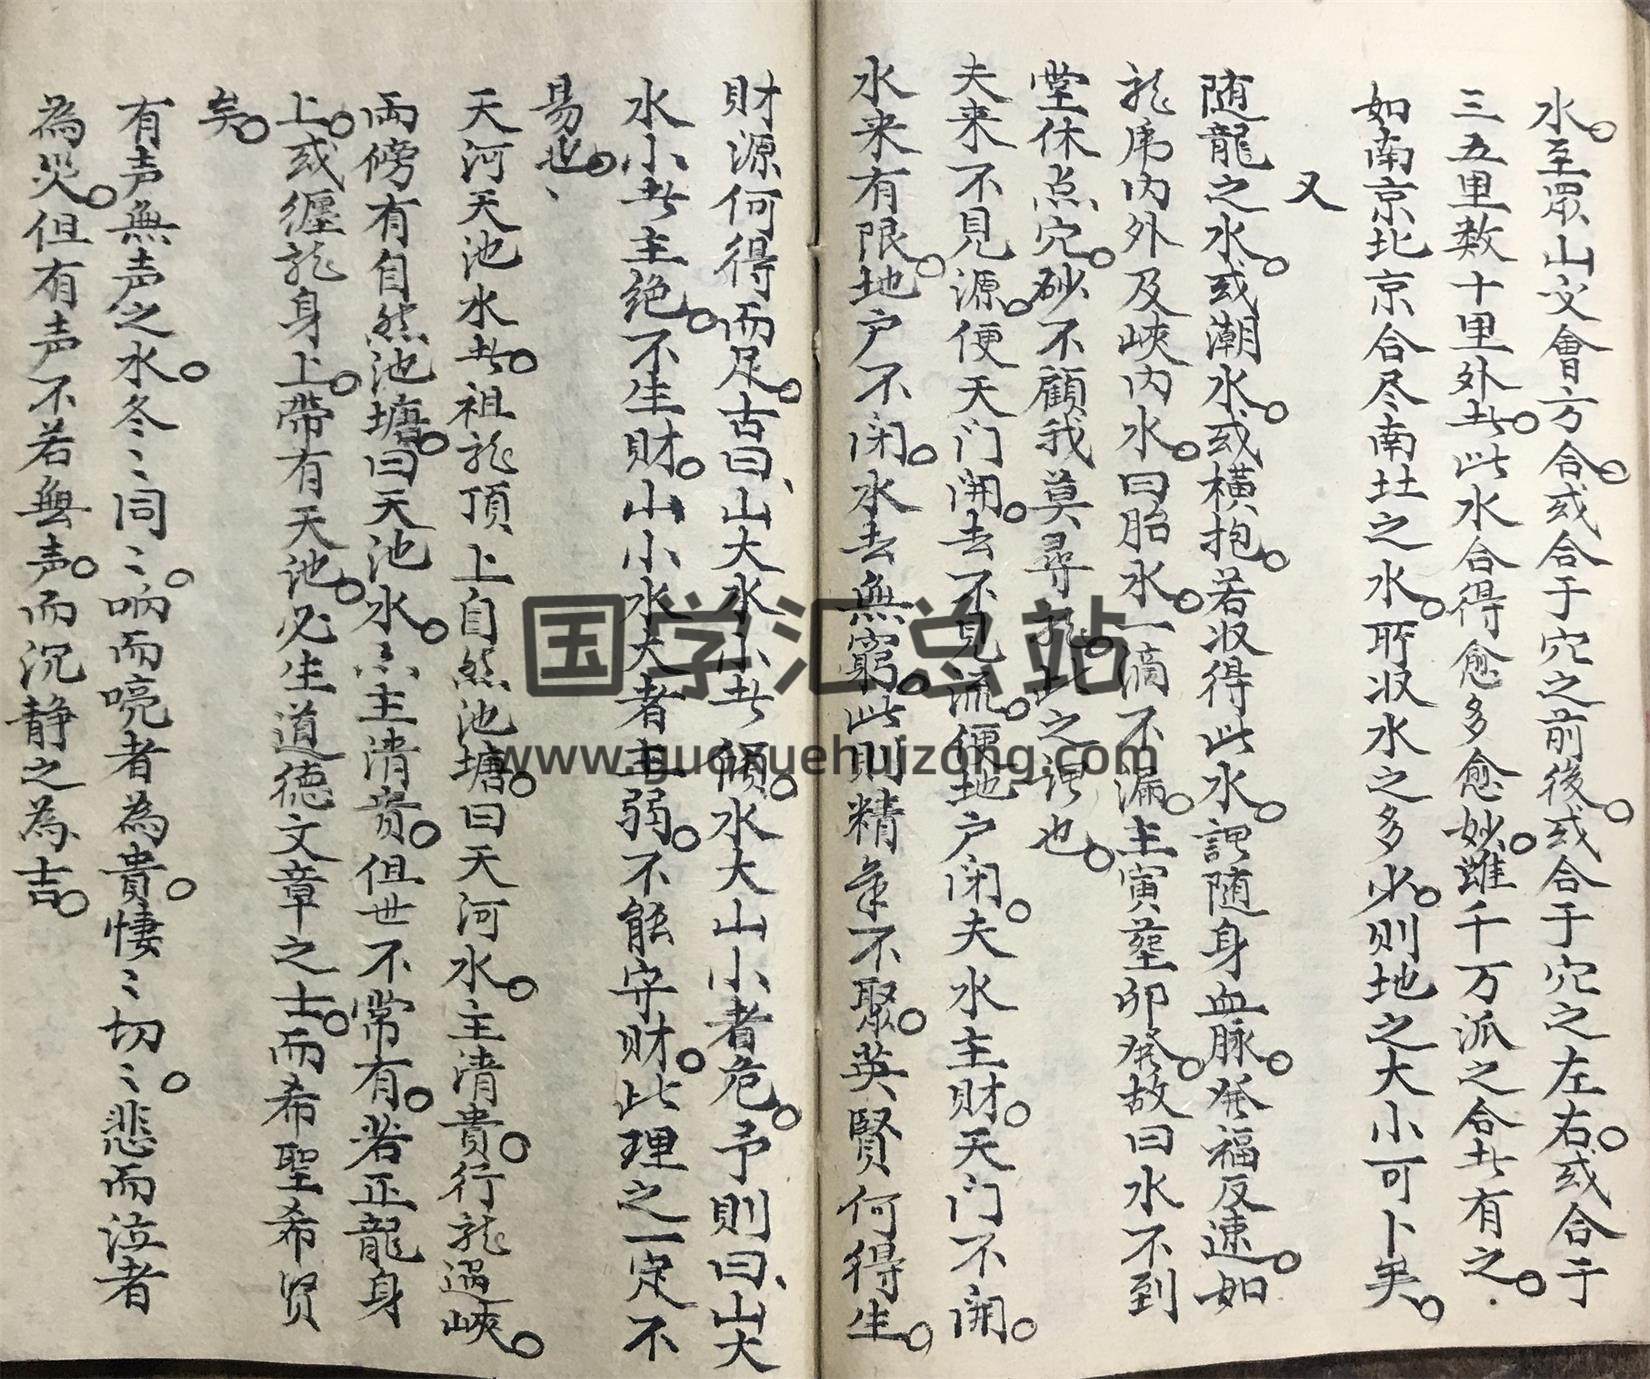 水。至眾山交會方合。或合于穴之前後。或合于穴之左右。或合于
三五里数十里外者。此水合得愈多愈妙。雖千万派之合者有之。
如南京北京合尽南北之水。所收水之多少。则地之大小可卜矣。
又
随龍之水。或潮水。或橫抱。若收得此水。謂随身血脉。発福反速。如
龙虎内外及峡内水。曰胎水。一滴不漏。主寅葬卯発。故曰水不到
堂休点穴。砂不顧我莫尋龙。此之谓也。
夫来不見源。便天门開。去不見流。便地户闭。夫水主财。天门不開。
水来有限。地户不闭。水去無窮。此則精氣不聚。英賢何得生。
財源何得而足。古曰、山大水小者傾。水大山小者危。予則曰、山大
水小者主绝。不生財。山小水大者主弱。不能守财。此理之一定不
易也。、
天河天池水者。祖龙頂上自然池塘。曰天河水。主清貴。行龙過峽。
両傍有自然池塘。曰天池水。亦主清贵。但世不常有。若正龍身
上。或纏龙身上。帶有天池。必生道德文章之士。而希聖希贤
矣。
有声無声之水。冬〻同〻。响而喨者為貴。悽〻切〻。悲而泣者
為災。但有声不若無声。而沉静之為吉。
国学汇总站
www.guoxuehuizong.com